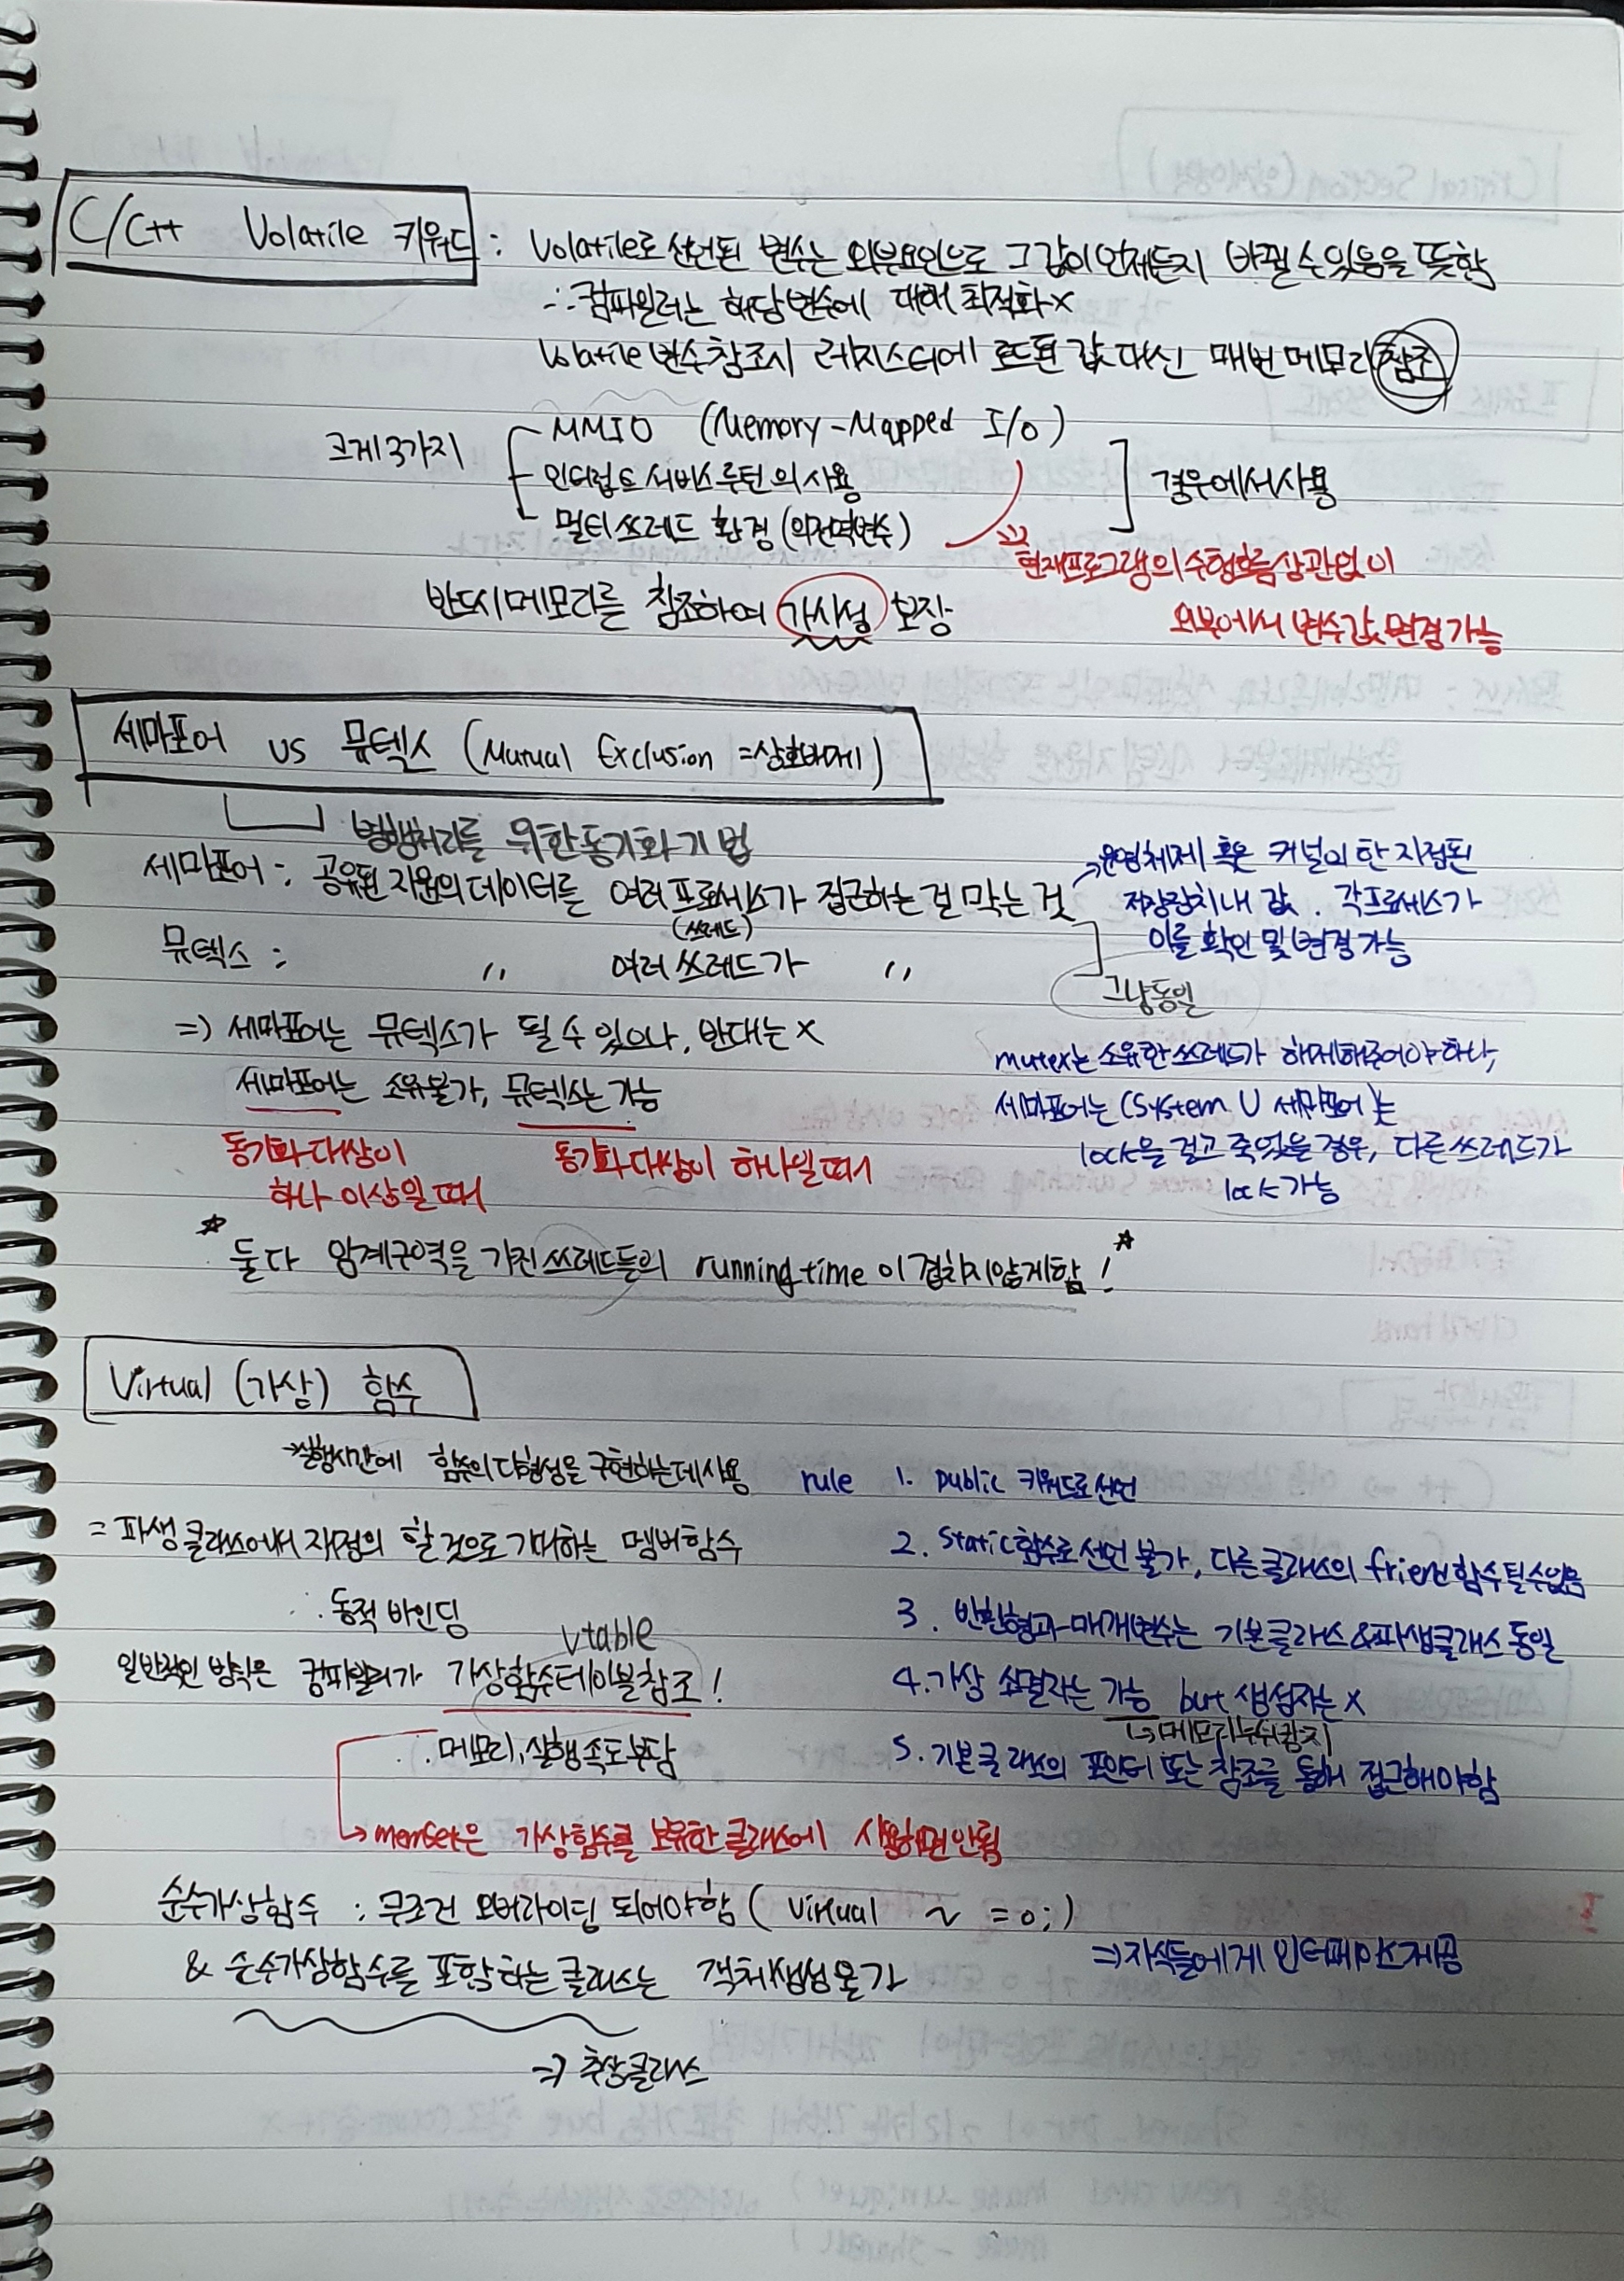 C/C++ Volatile 키워드 : Volatile로 선언된 변수는 외부요인으로 그 값이 언제든지 바뀔 수 있음을 뜻함
∴ 컴파일러는 해당변수에 대해 최적화 x
Volatile 변수 참조시 레지스터에 로드된 값 대신 매번 메모리 참조
크게 3가지
MMIO (Memory-Mapped I/O)
인터럽트 서비스 루틴의 사용
멀티 쓰레드 환경 (의 전역변수)
경우에서 사용
⇒ 현재프로그램의 수행흐름 상관없이
외부에서 변수값 변경 가능
반드시 메모리를 참조하여 가시성 보장
세마포어 vs 뮤텍스 (Mutual Exclusion = 상호배제)
병행처리를 위한 동기화 기법
세마포어 : 공유된 자원의 데이터를 여러 프로세스가 접근하는 걸 막는 것
(쓰레드)
→ 운영체제 혹은 커널의 한 지정된
저장장치 내 값. 각 프로세스가
이를 확인 및 변경 가능
뮤텍스 : 〃 여러 쓰레드가 〃
그냥 동일
=) 세마포어는 뮤텍스가 될 수 있으나, 반대는 x
세마포어는 소유불가, 뮤텍스는 가능
동기화 대상이
하나 이상일 때
동기화 대상이 하나일 때
mutex는 소유한 쓰레드가 해제해주어야 하나,
세마포어는 (System V 세마포어)는
lock을 걸고 죽었을 경우, 다른 쓰레드가
lock 가능
☆ 둘 다 임계구역을 가진 쓰레드들의 running time이 겹치지 않게 함! ☆
Virtual (가상) 함수
→ 실행시간에 함수의 다형성을 구현하는데 사용
= 파생 클래스에서 재정의 할 것으로 기대하는 멤버함수
∴ 동적 바인딩
vtable
일반적인 방식은 컴파일러가 가상함수테이블 참조!
∴ 메모리, 실행 속도 부담
→ memset은 가상함수를 보유한 클래스에 사용하면 안됨
rule 1. public 키워드로 선언
2. static 함수로 선언 불가, 다른 클래스의 friend 함수 될 수 없음
3. 반환형과 매개변수는 기본클래스 & 파생클래스 동일
4. 가상 소멸자는 가능 but 생성자는 x
↳ 메모리 누수 방지
5. 기본 클래스의 포인터 또는 참조를 통해 접근해야함
순수가상함수 : 무조건 오버라이딩 되어야함 ( virtual ~ = 0; )
⇒ 자식들에게 인터페이스 제공
& 순수가상함수를 포함하는 클래스는 객체생성 불가
⇒ 추상클래스